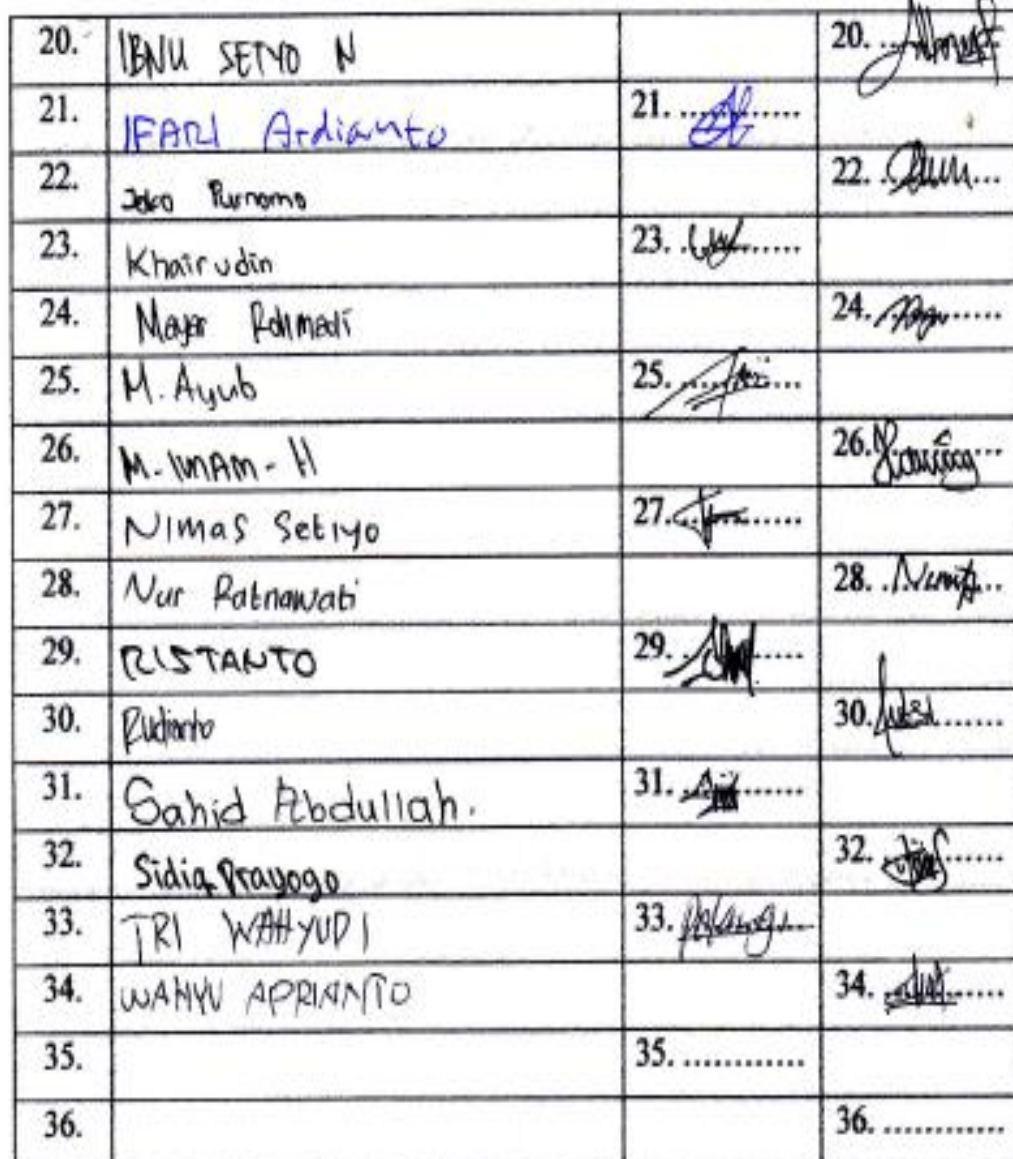 20. IBNU SETYO N 20. ...
21. IFARI Ardianto 21. ............
22. Joko Purnomo 22. ...
23. Khairudin 23. ............
24. Mayar Rohmadi 24. ............
25. M. Ayub 25. ............
26. M. IMAM - H 26. ...
27. NIMAS Setiyo 27. ............
28. Nur Ratnawati 28. ...
29. RISTANTO 29. ............
30. Rudianto 30. ............
31. Sahid Abdullah. 31. ............
32. Sidiq Prayogo 32. ............
33. TRI WAHYUDI 33. ...
34. WAHYU APRIANTO 34. ............
35. 35. ............
36. 36. ............